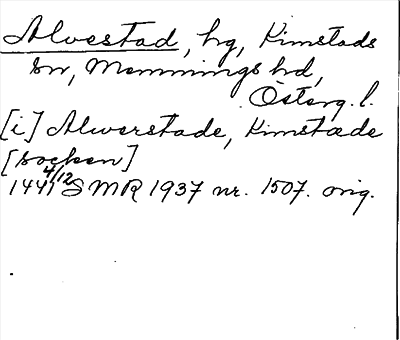 Alvestad, hg, Kimstads
sn, Memmings hd,
Österg. l.
[i] Alwerstade, Kimstade
[socken]
1441 4/12 SMR 1937 nr. 1507. orig.